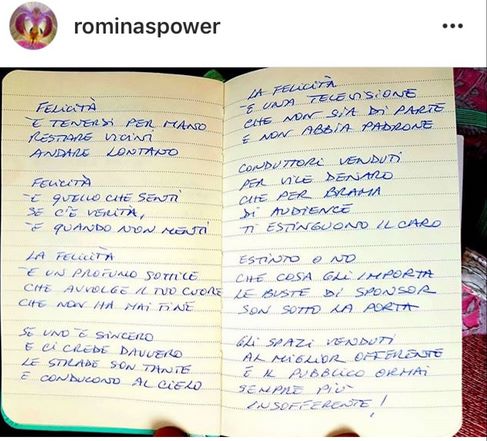 rominaspower
FELICITÀ
È TENERSI PER MANO
RESTARE VICINI
ANDARE LONTANO
FELICITÀ
È QUELLO CHE SENTI
SE C'È VERITÀ,
È QUANDO NON MENTI
LA FELICITÀ
È UN PROFUMO SOTTILE
CHE AVVOLGE IL TUO CUORE
CHE NON HA MAI FINE
SE UNO È SINCERO
E CI CREDE DAVVERO
LE STRADE SON TANTE
E CONDUCONO AL CIELO
LA FELICITÀ
È UNA TELEVISIONE
CHE NON SIA DI PARTE
E NON ABBIA PADRONE
CONDUTTORI VENDUTI
PER VILE DENARO
CHE PER BRAMA
DI AUDIENCE
TI ESTINGUONO IL CARO
ESTINTO O NO
CHE COSA GLI IMPORTA
LE BUSTE DI SPONSOR
SON SOTTO LA PORTA
GLI SPAZI VENDUTI
AL MIGLIOR OFFERENTE
E IL PUBBLICO ORMAI
SEMPRE PIÙ
INSOFFERENTE!